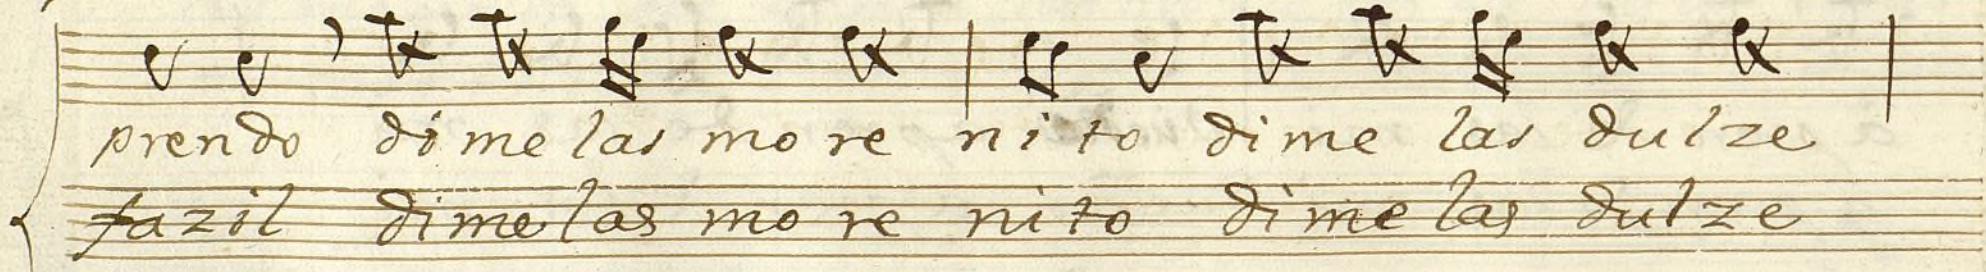 prendo dimelas more nito dime las dulze
fazil dimelas more nito dime las dulze